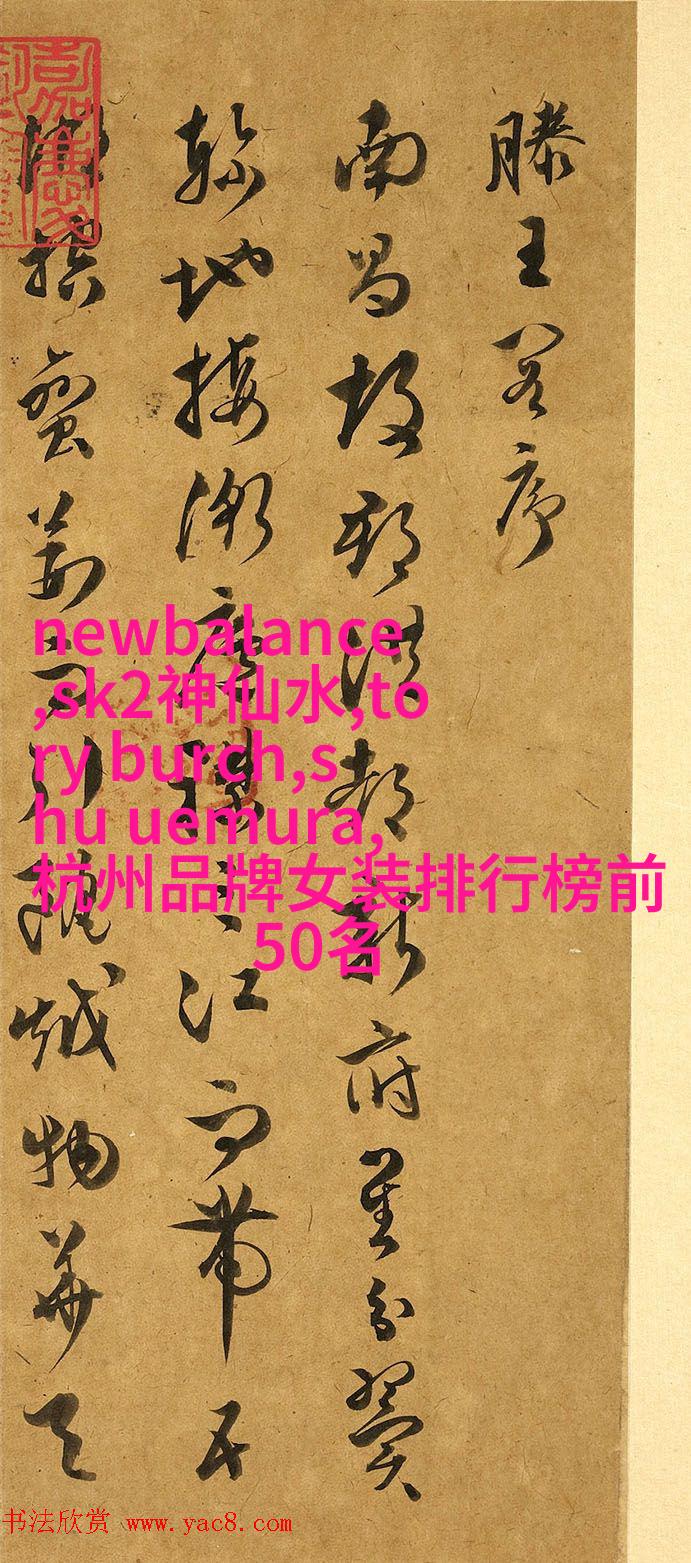 滕王閣序
南昌故郡洪都新府星分翼
軫地接衡廬襟三江而帶五
湖控蠻荊而引甌越物華天
newbalance
,sk2神仙水,to
ry burch,s
hu uemura,
杭州品牌女装排行榜前
50名
书法欣赏 www.yac8.com